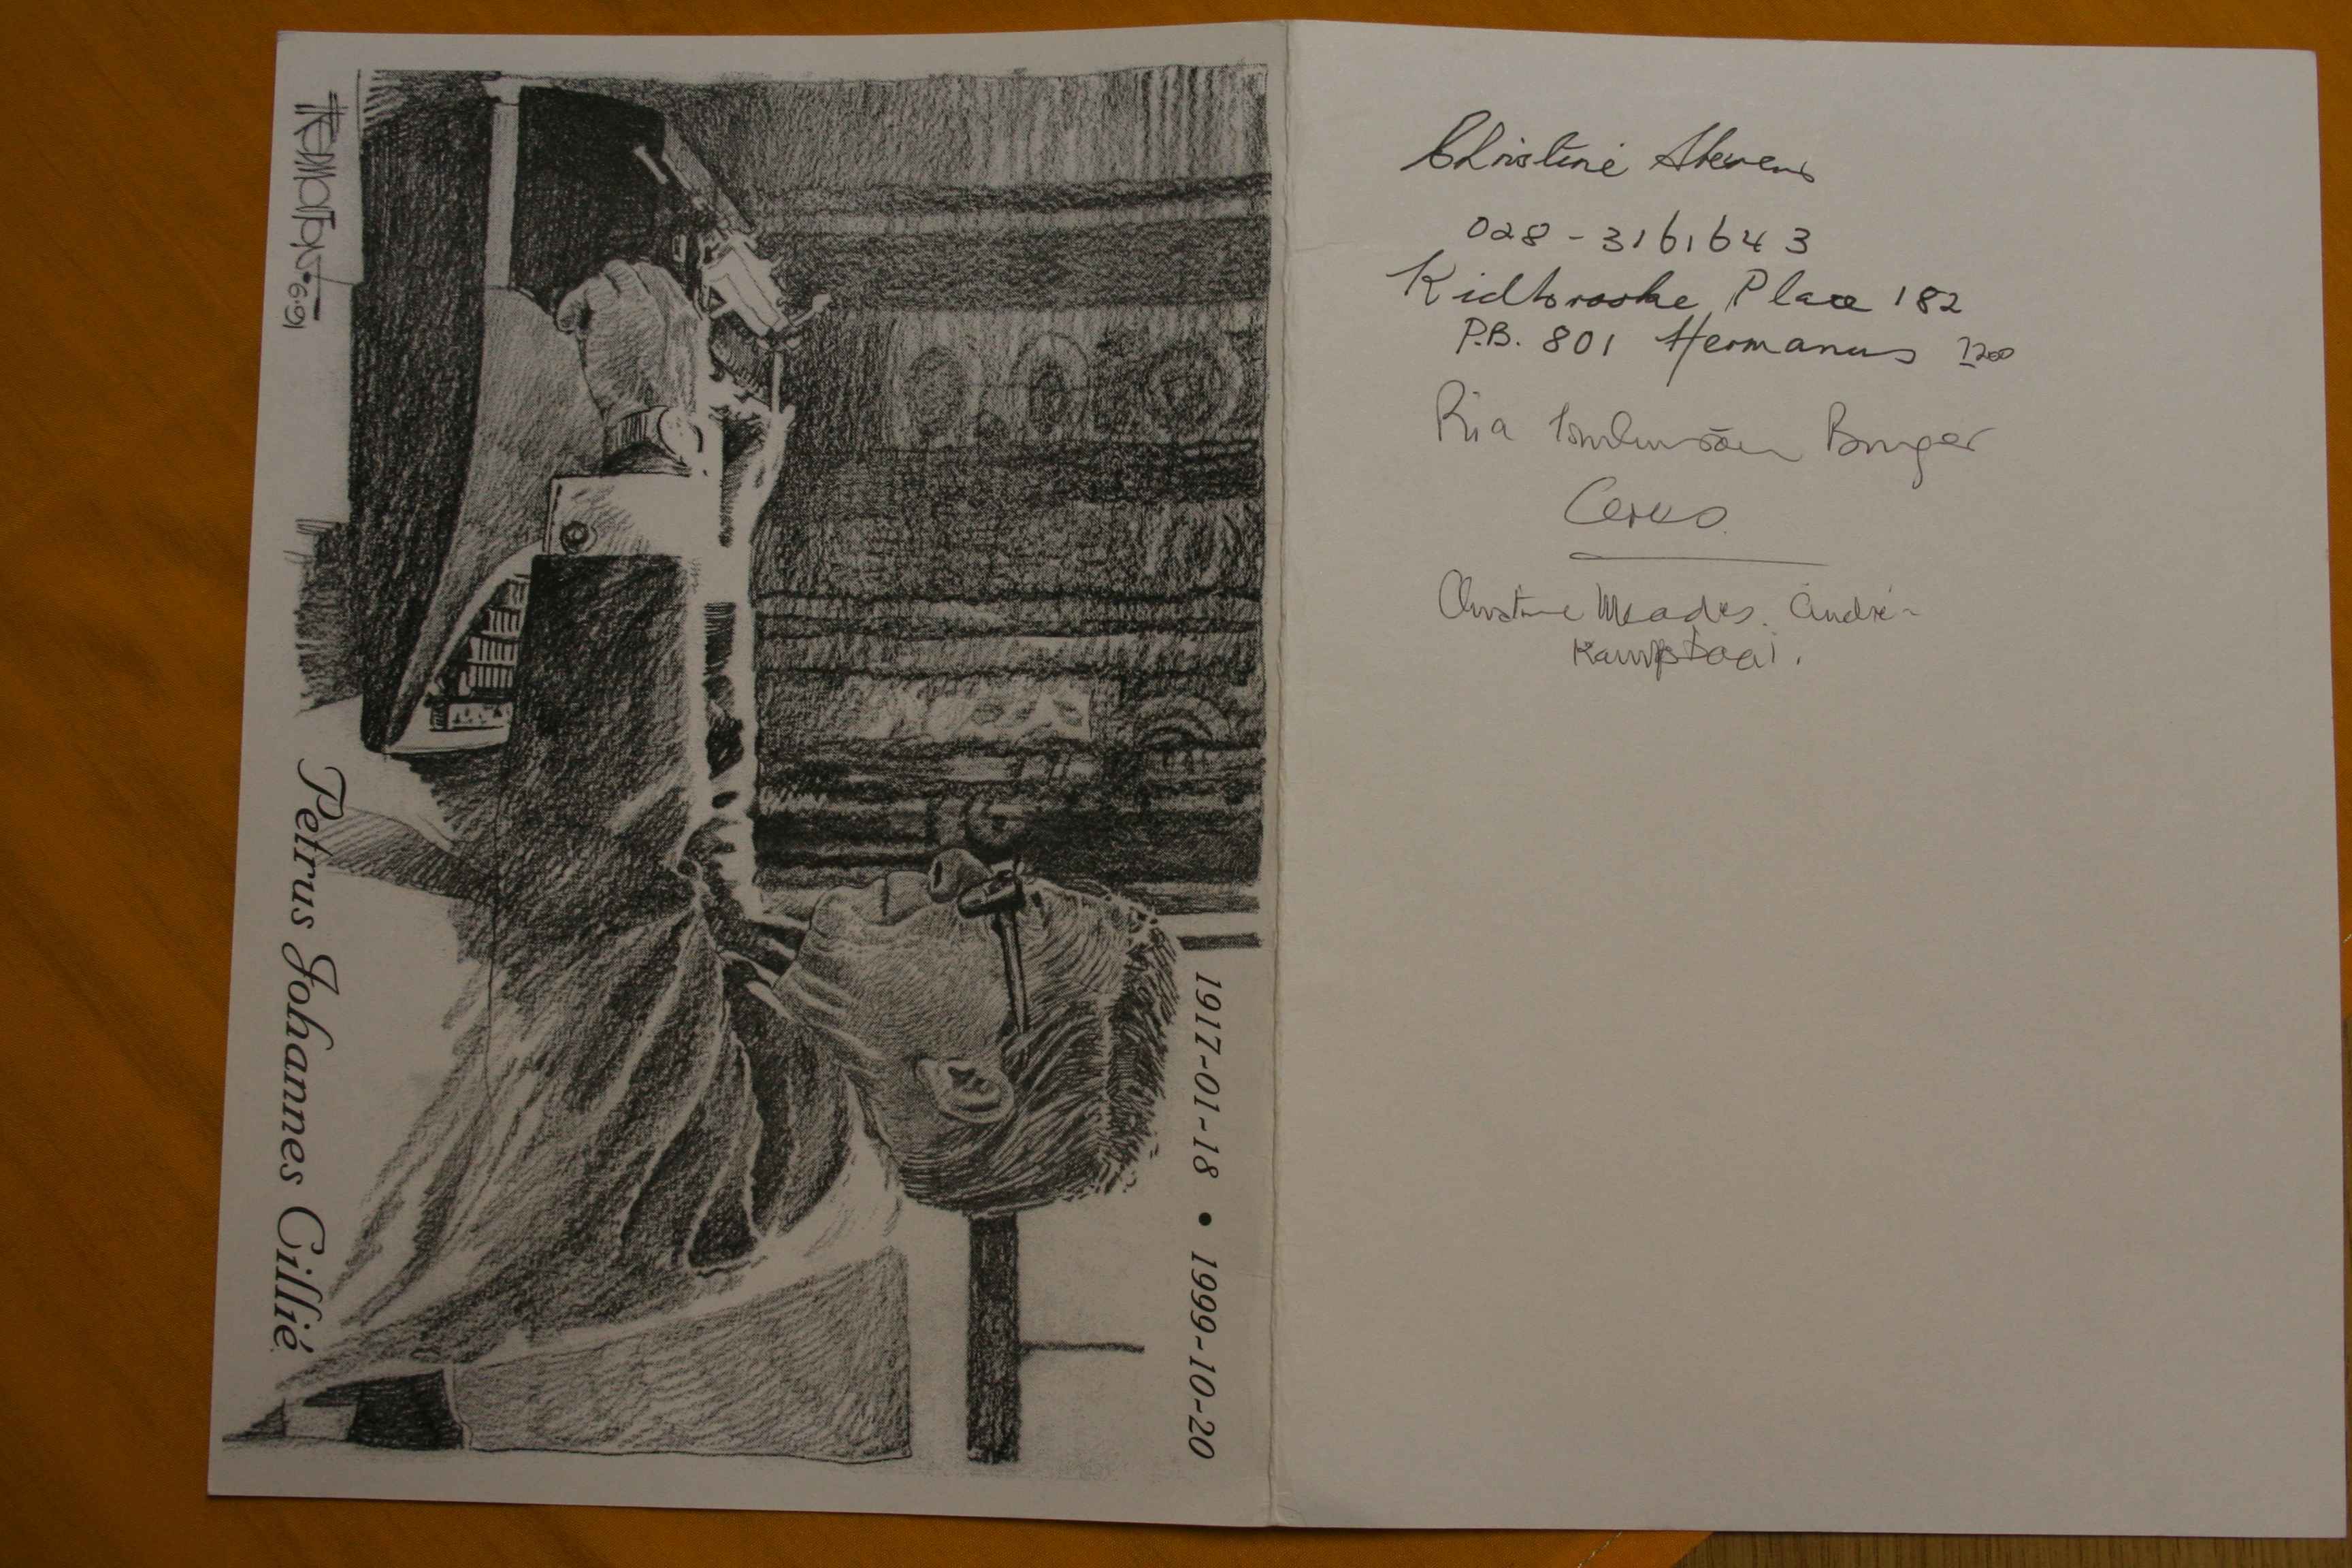 1917-01-18 • 1999-10-20
Petrus Johannes Cillié
Christine Stevens
028-3161643
Kidbrooke Place 182
P.B. 801 Hermanus 7200
Ria Tomlinson Burger
Ceres.
Christine Meades. André